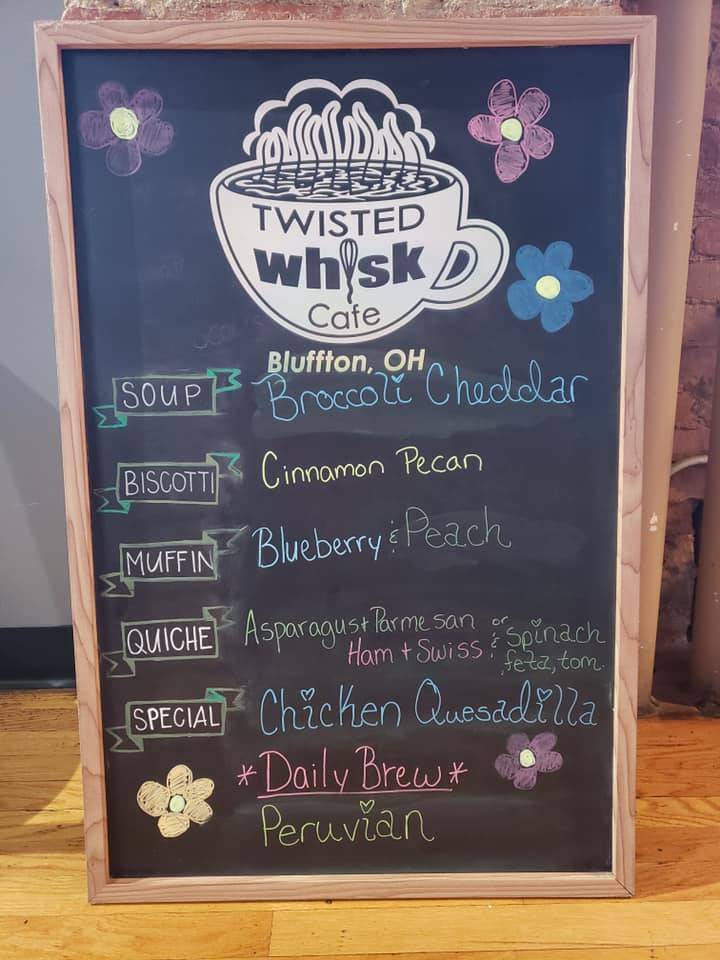 TWISTED
whisk
Cafe
Bluffton, OH
SOUP Broccoli Cheddar
BISCOTTI Cinnamon Pecan
MUFFIN Blueberry & Peach
QUICHE Asparagus + Parmesan or Spinach
Ham + Swiss feta, tom.
SPECIAL Chicken Quesadilla
*Daily Brew*
Peruvian